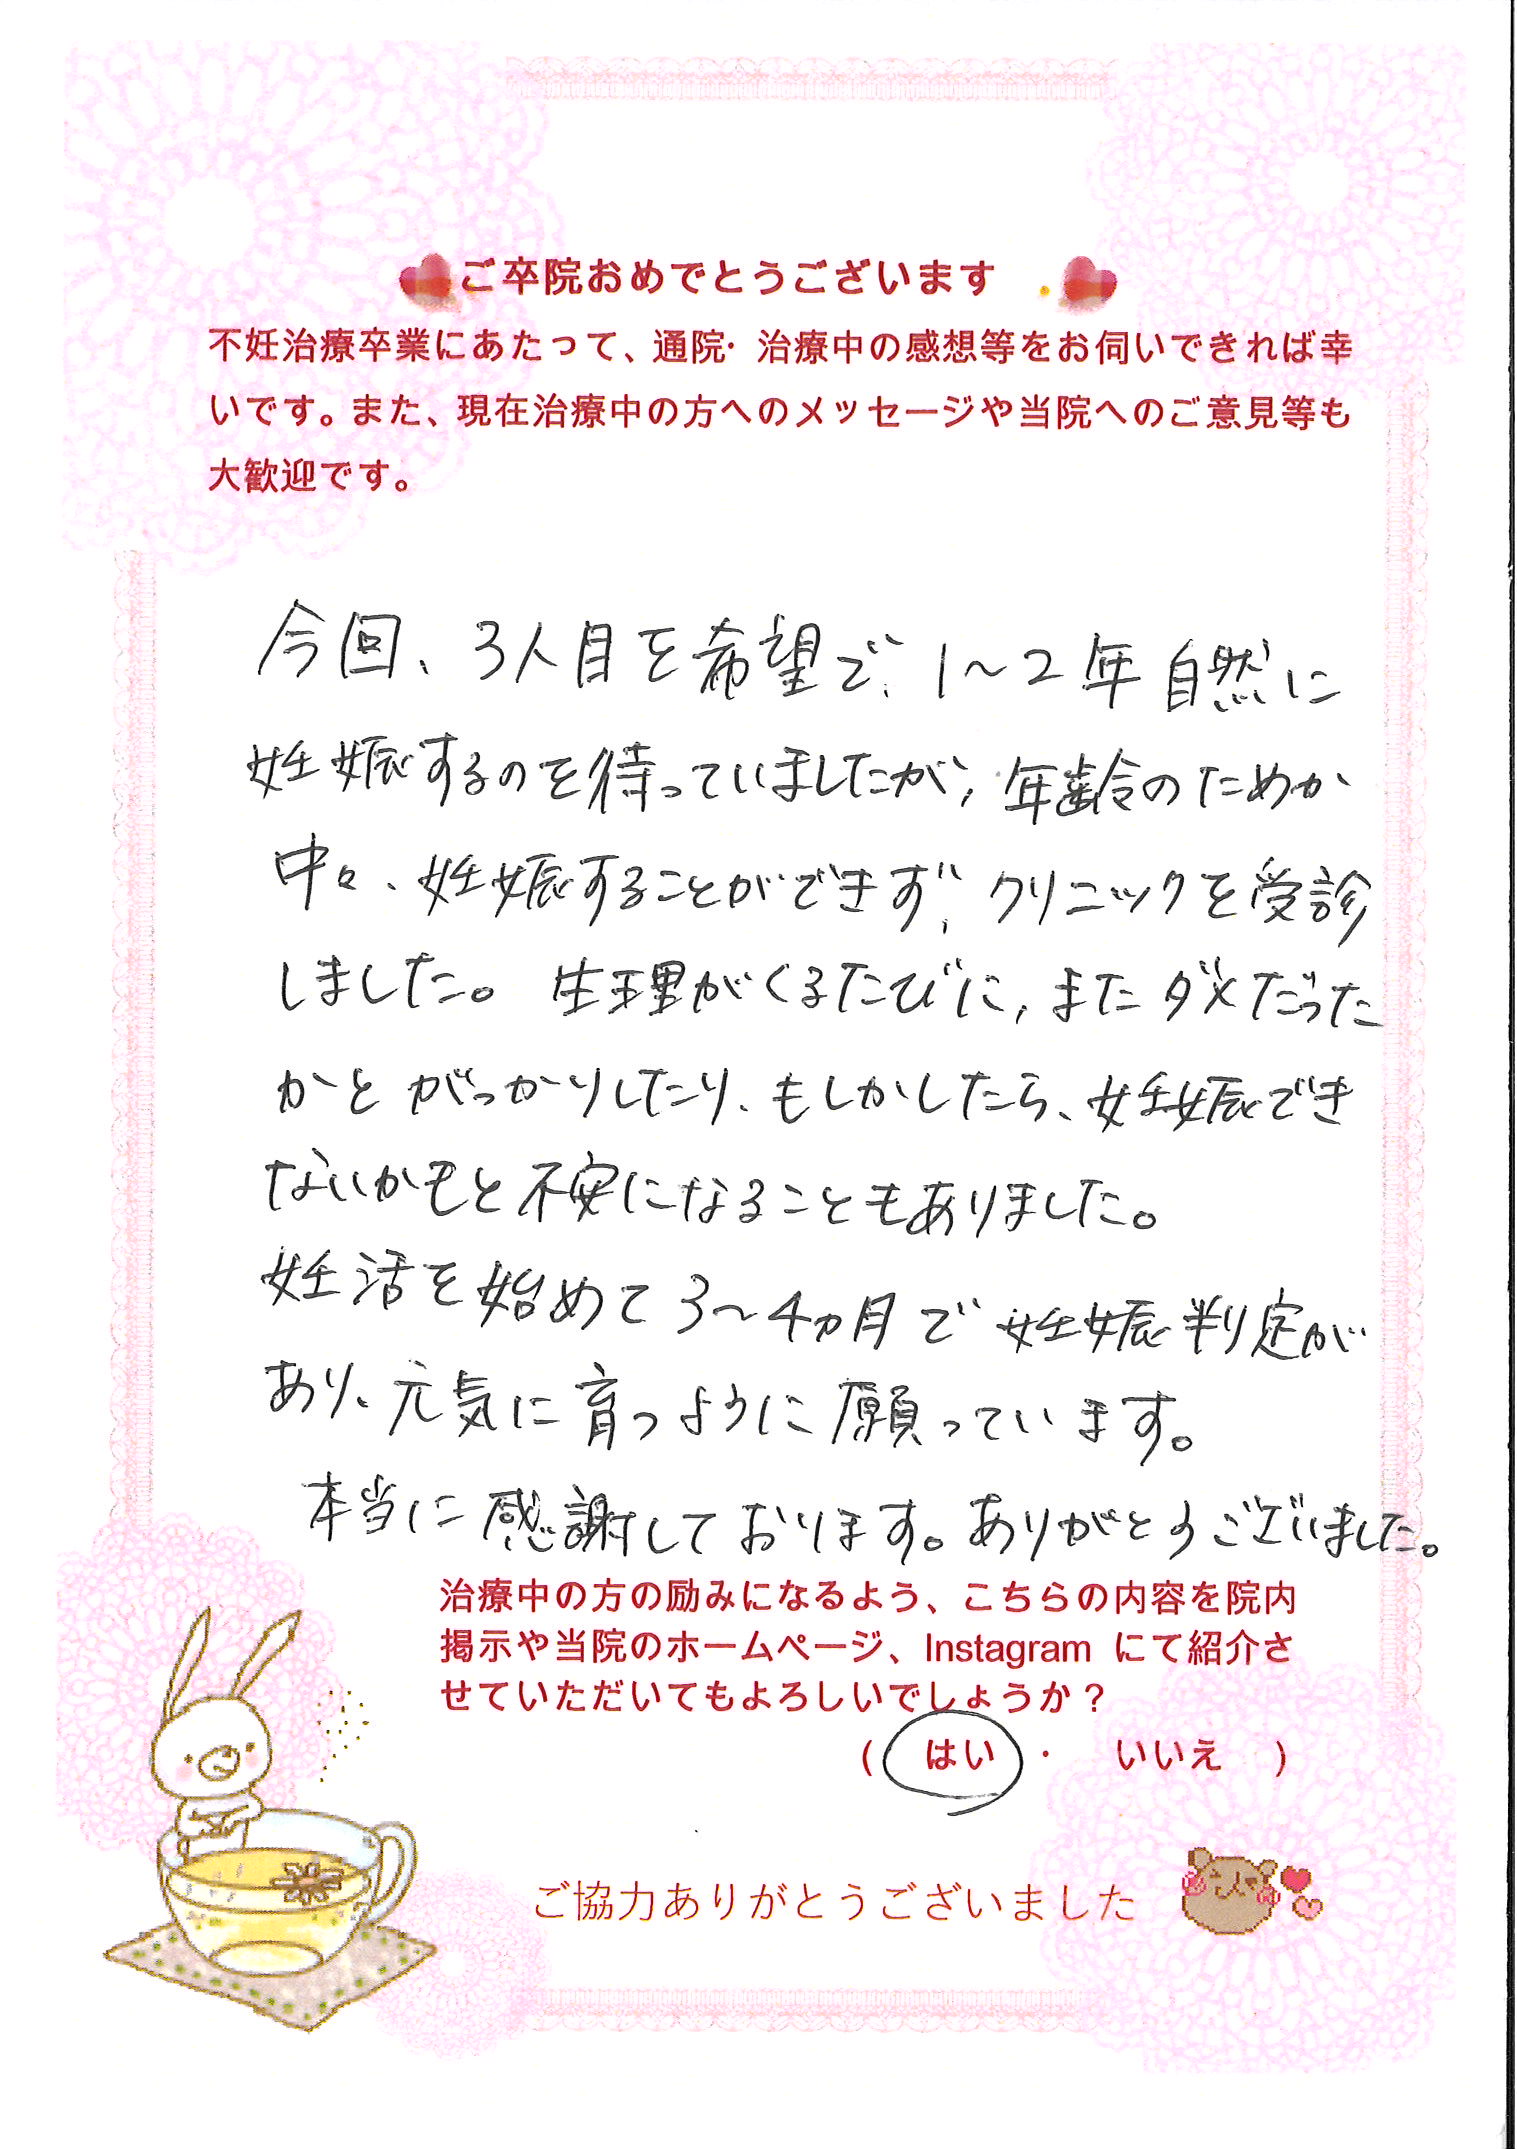 ご卒院おめでとうございます
不妊治療卒業にあたって、通院・治療中の感想等をお伺いできれば幸
いです。また、現在治療中の方へのメッセージや当院へのご意見等も
大歓迎です。
今回、3人目を希望で、1〜2年自然に
妊娠するのを待っていましたが、年齢のためか
中々、妊娠することができず、クリニックを受診
しました。生理がくるたびに、またダメだった
かとがっかりしたり、もしかしたら、妊娠でき
ないかもと不安になることもありました。
妊活を始めて3〜4ヵ月で妊娠判定が
あり、元気に育つように願っています。
本当に感謝しております。ありがとうございました。
治療中の方の励みになるよう、こちらの内容を院内
掲示や当院のホームページ、Instagram にて紹介さ
せていただいてもよろしいでしょうか？
( はい ・ いいえ )
ご協力ありがとうございました